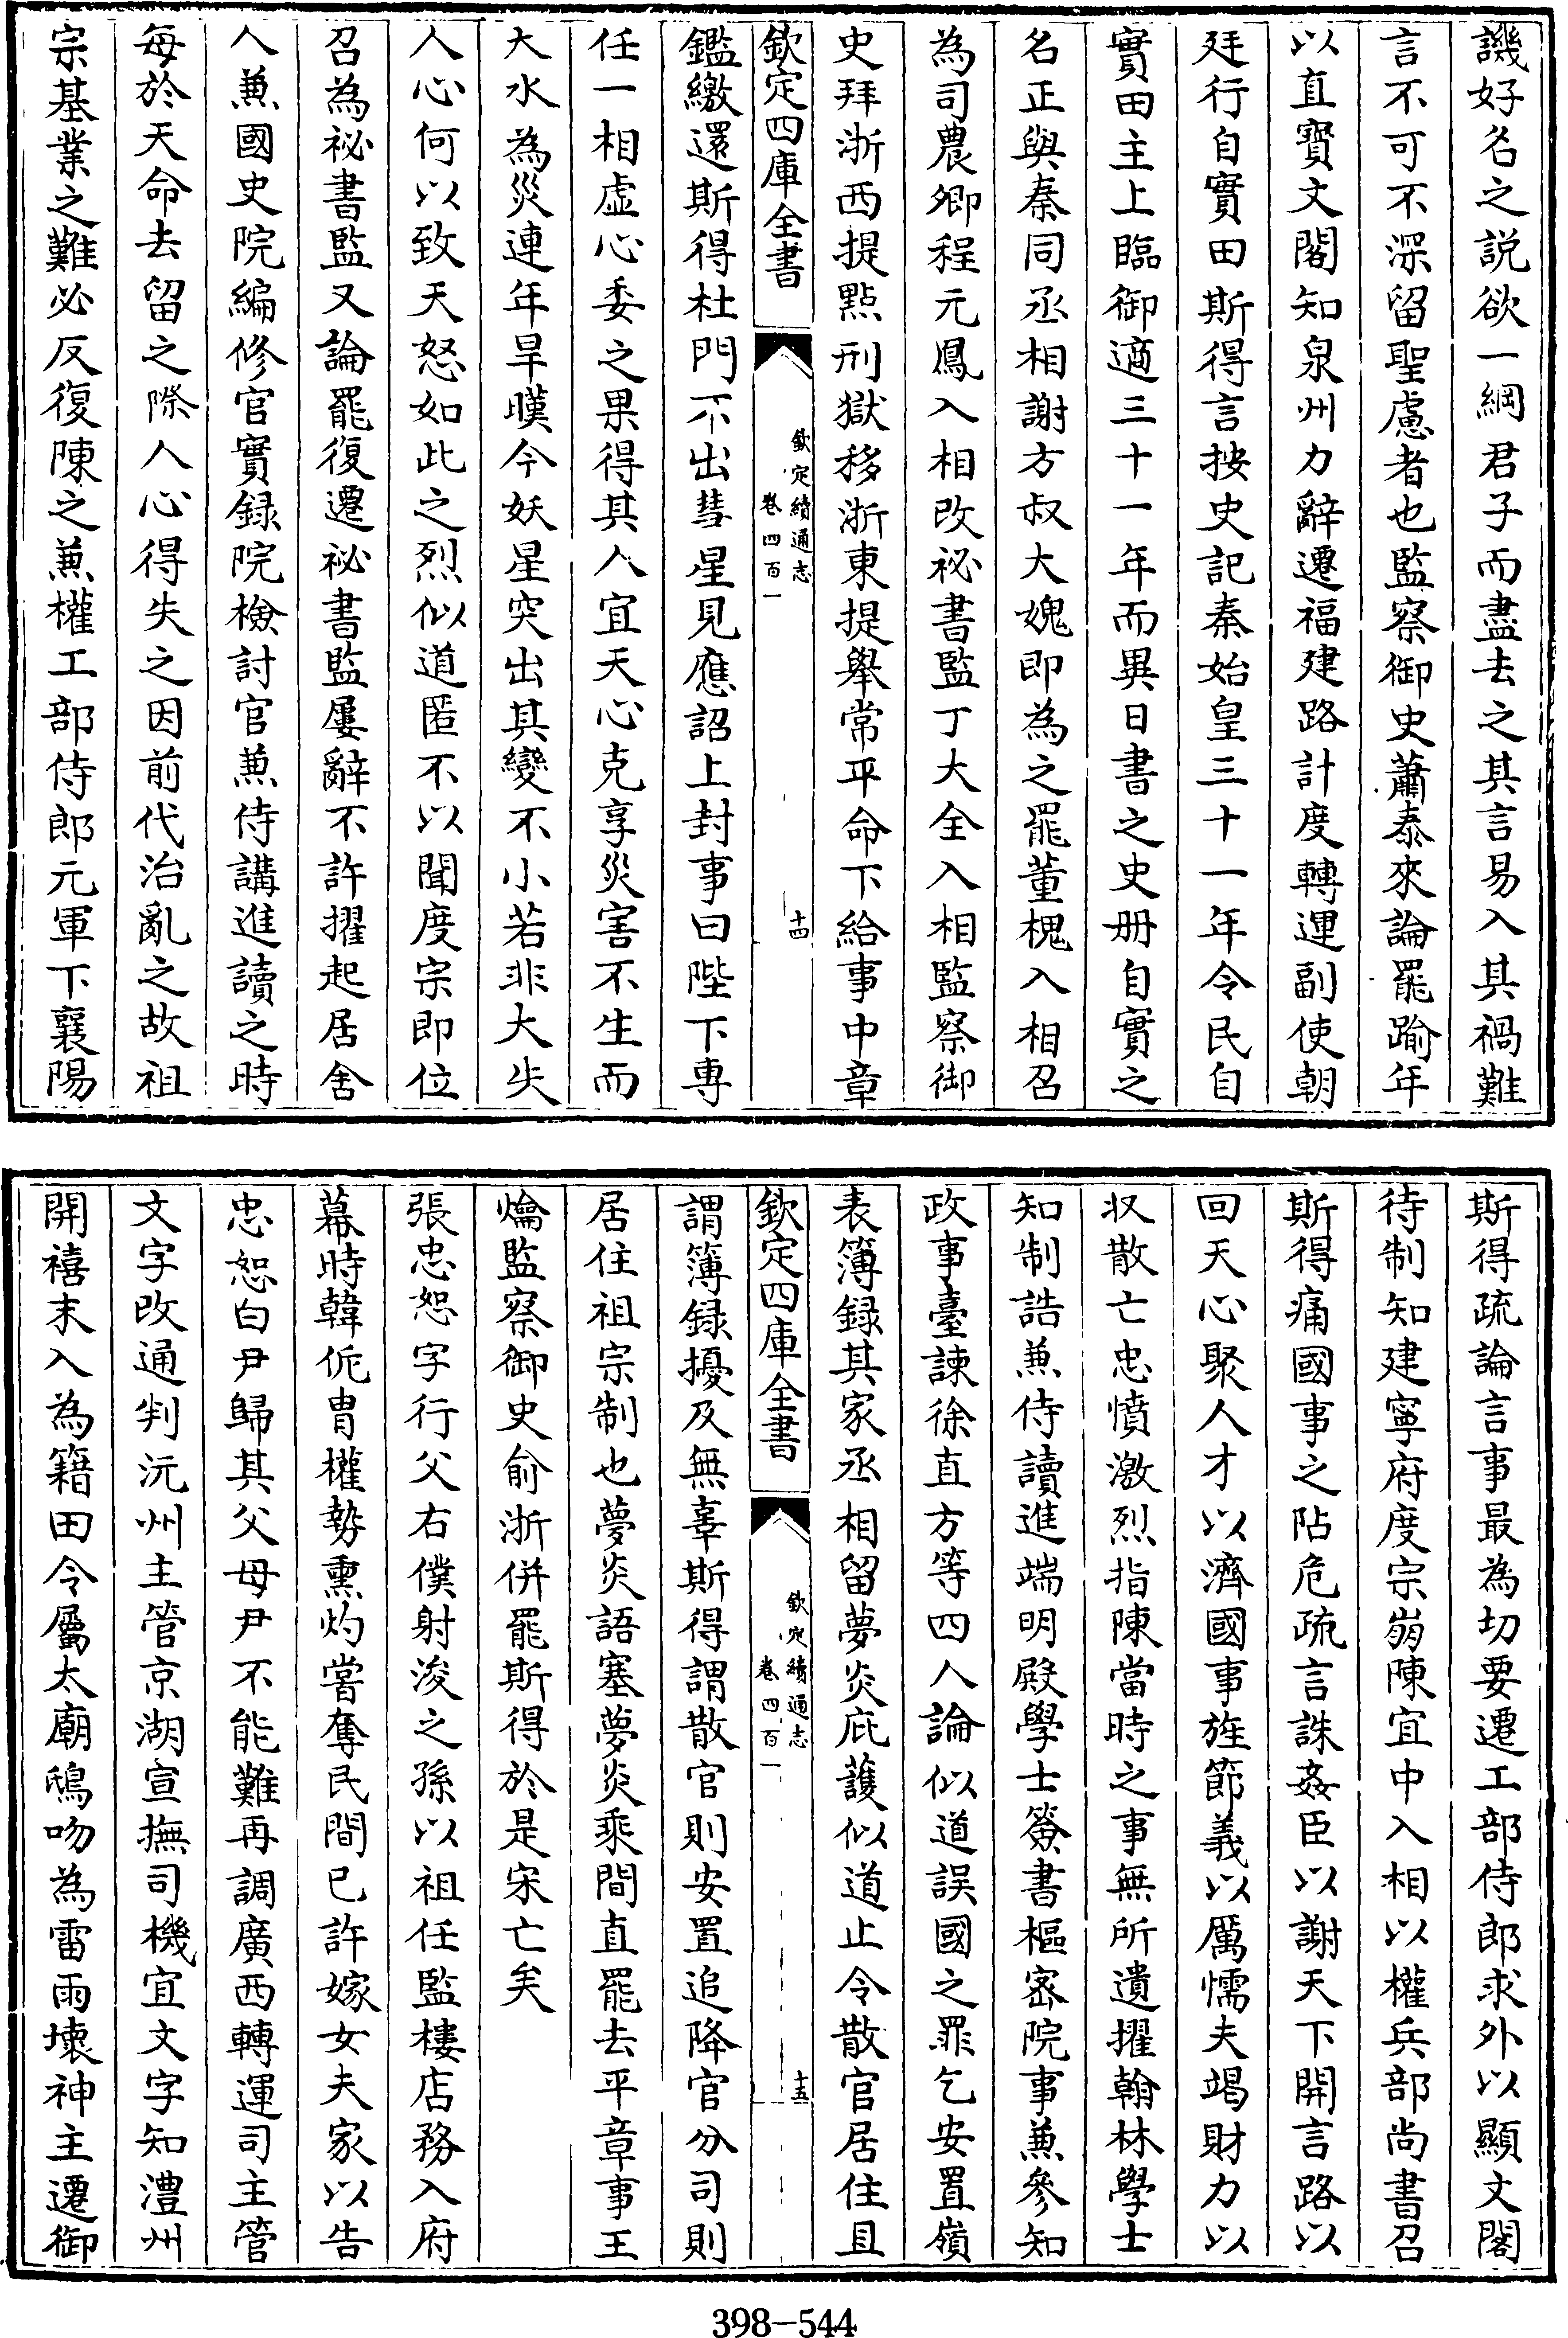 譏好名之説欲一綱君子而盡去之其言易入其禍難
言不可不深留聖慮者也監察御史蕭泰來論罷踰年
以直寳文閣知泉州力辭遷福建路計度轉運副使朝
廷行自實田斯得言按史記秦始皇三十一年令民自
實田主上臨御適三十一年而異日書之史册自實之
名正與秦同丞相謝方叔大媿即為之罷董槐入相召
為司農卿程元鳳入相改祕書監丁大全入相監察御
史拜浙西提點刑獄移浙東提舉常平命下給事中章
欽定四庫全書
欽定續通志
卷四百一
十四
鑑繳還斯得杜門不出彗星見應詔上封事曰陛下專
任一相虚心委之果得其人宜天心克享災害不生而
大水為災連年旱嘆今妖星突出其變不小若非大失
人心何以致天怒如此之烈似道匿不以聞度宗即位
召為祕書監又論罷復遷祕書監屢辭不許擢起居舍
人兼國史院編修官實録院檢討官兼侍講進讀之時
每於天命去留之際人心得失之因前代治亂之故祖
宗基業之難必反復陳之兼權工部侍郎元軍下襄陽
斯得疏論言事最為切要遷工部侍郎求外以顯文閣
待制知建寧府度宗崩陳宜中入相以權兵部尚書召
斯得痛國事之阽危疏言誅姦臣以謝天下開言路以
回天心聚人才以濟國事旌節義以厲懦夫竭財力以
收散亡忠憤激烈指陳當時之事無所遺擢翰林學士
知制誥兼侍讀進端明殿學士簽書樞密院事兼參知
政事臺諫徐直方等四人論似道誤國之罪乞安置嶺
表簿録其家丞相留夢炎庇護似道止令散官居住且
欽定四庫全書
欽定續通志
卷四百一
十五
謂簿録擾及無辜斯得謂散官則安置追降官分司則
居住祖宗制也夢炎語塞夢炎乘間直罷去平章事王
爚監察御史俞浙併罷斯得於是宋亡矣
張忠恕字行父右僕射浚之孫以祖任監樓店務入府
幕時韓侂胄權勢熏灼嘗奪民間已許嫁女夫家以告
忠恕白尹歸其父母尹不能難再調廣西轉運司主管
文字改通判沅州主管京湖宣撫司機宜文字知澧州
開禧末入為籍田令屬太廟鴟吻為雷雨壞神主遷御
398-544